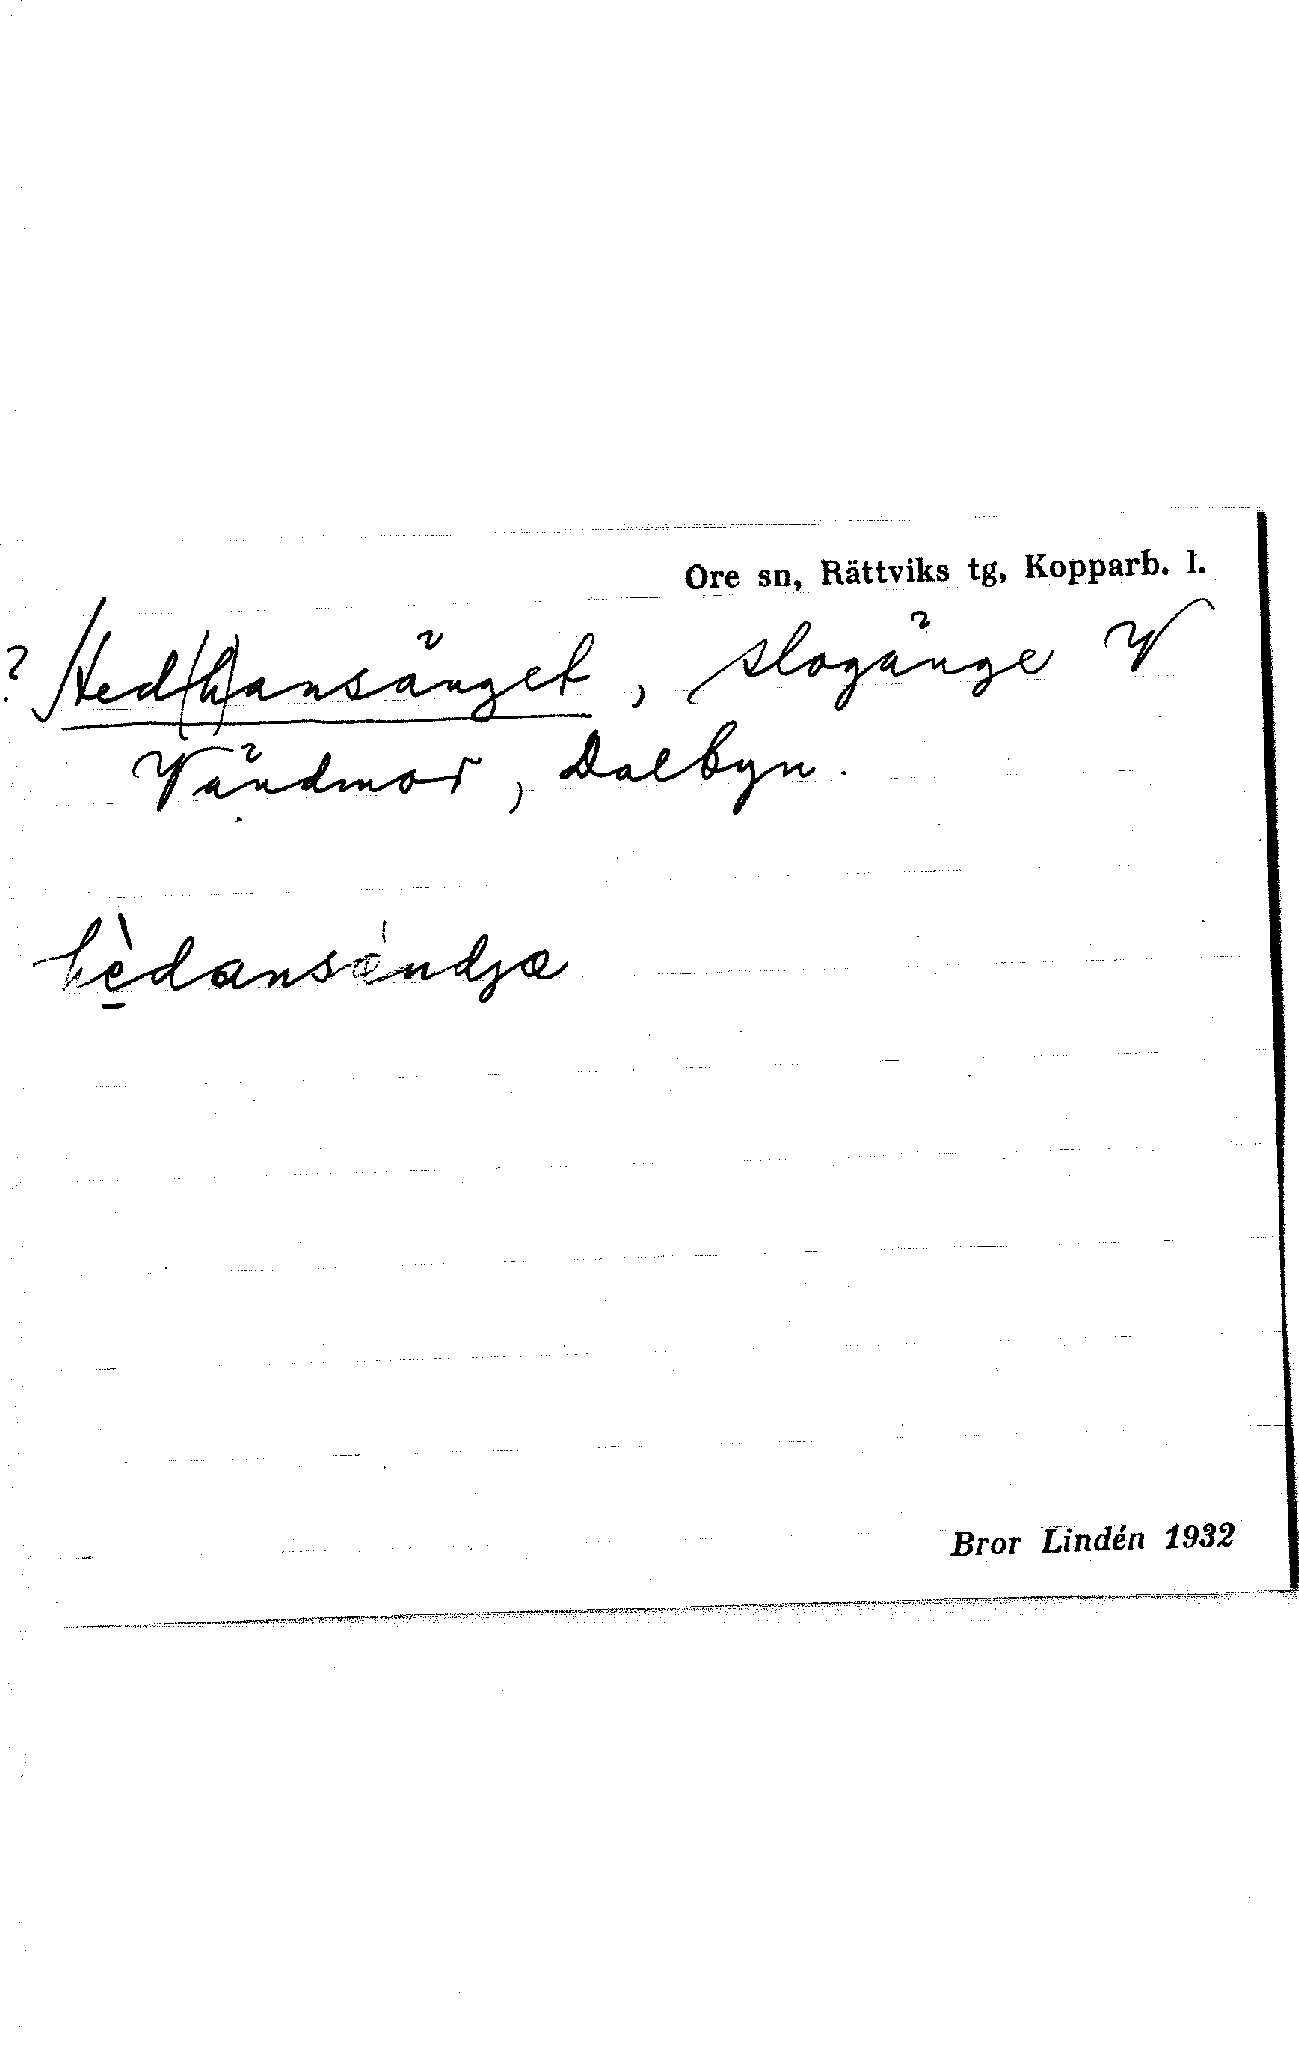 Ore sn, Rättviks tg, Kopparb. l.
? Hed(h)ansänget, slogänge V
Vändmor, Dalbyn.
hèdansándja
Bror Lindén 1932